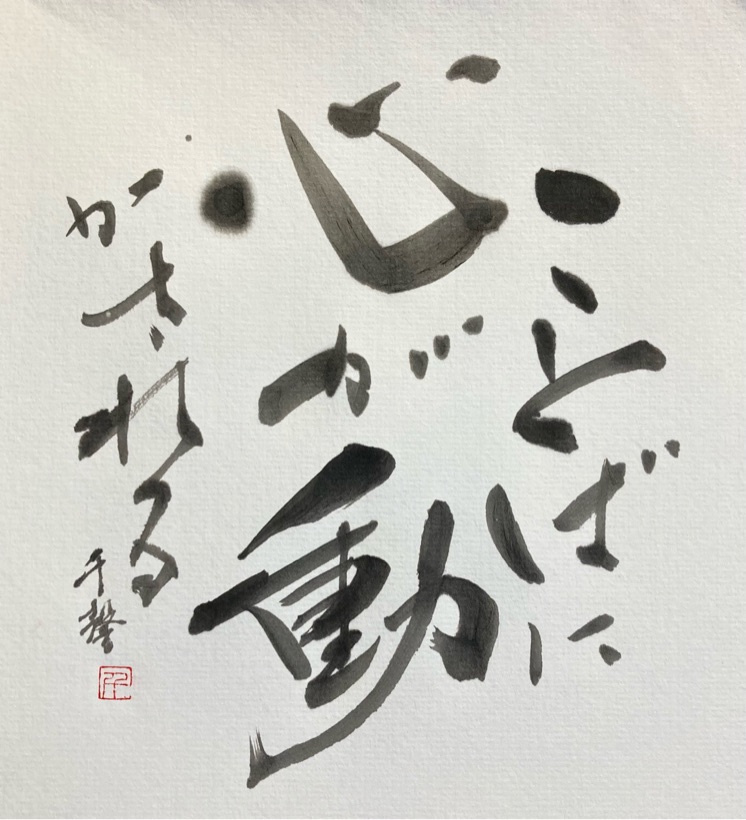 ことばに
心が動
かされる
千馨